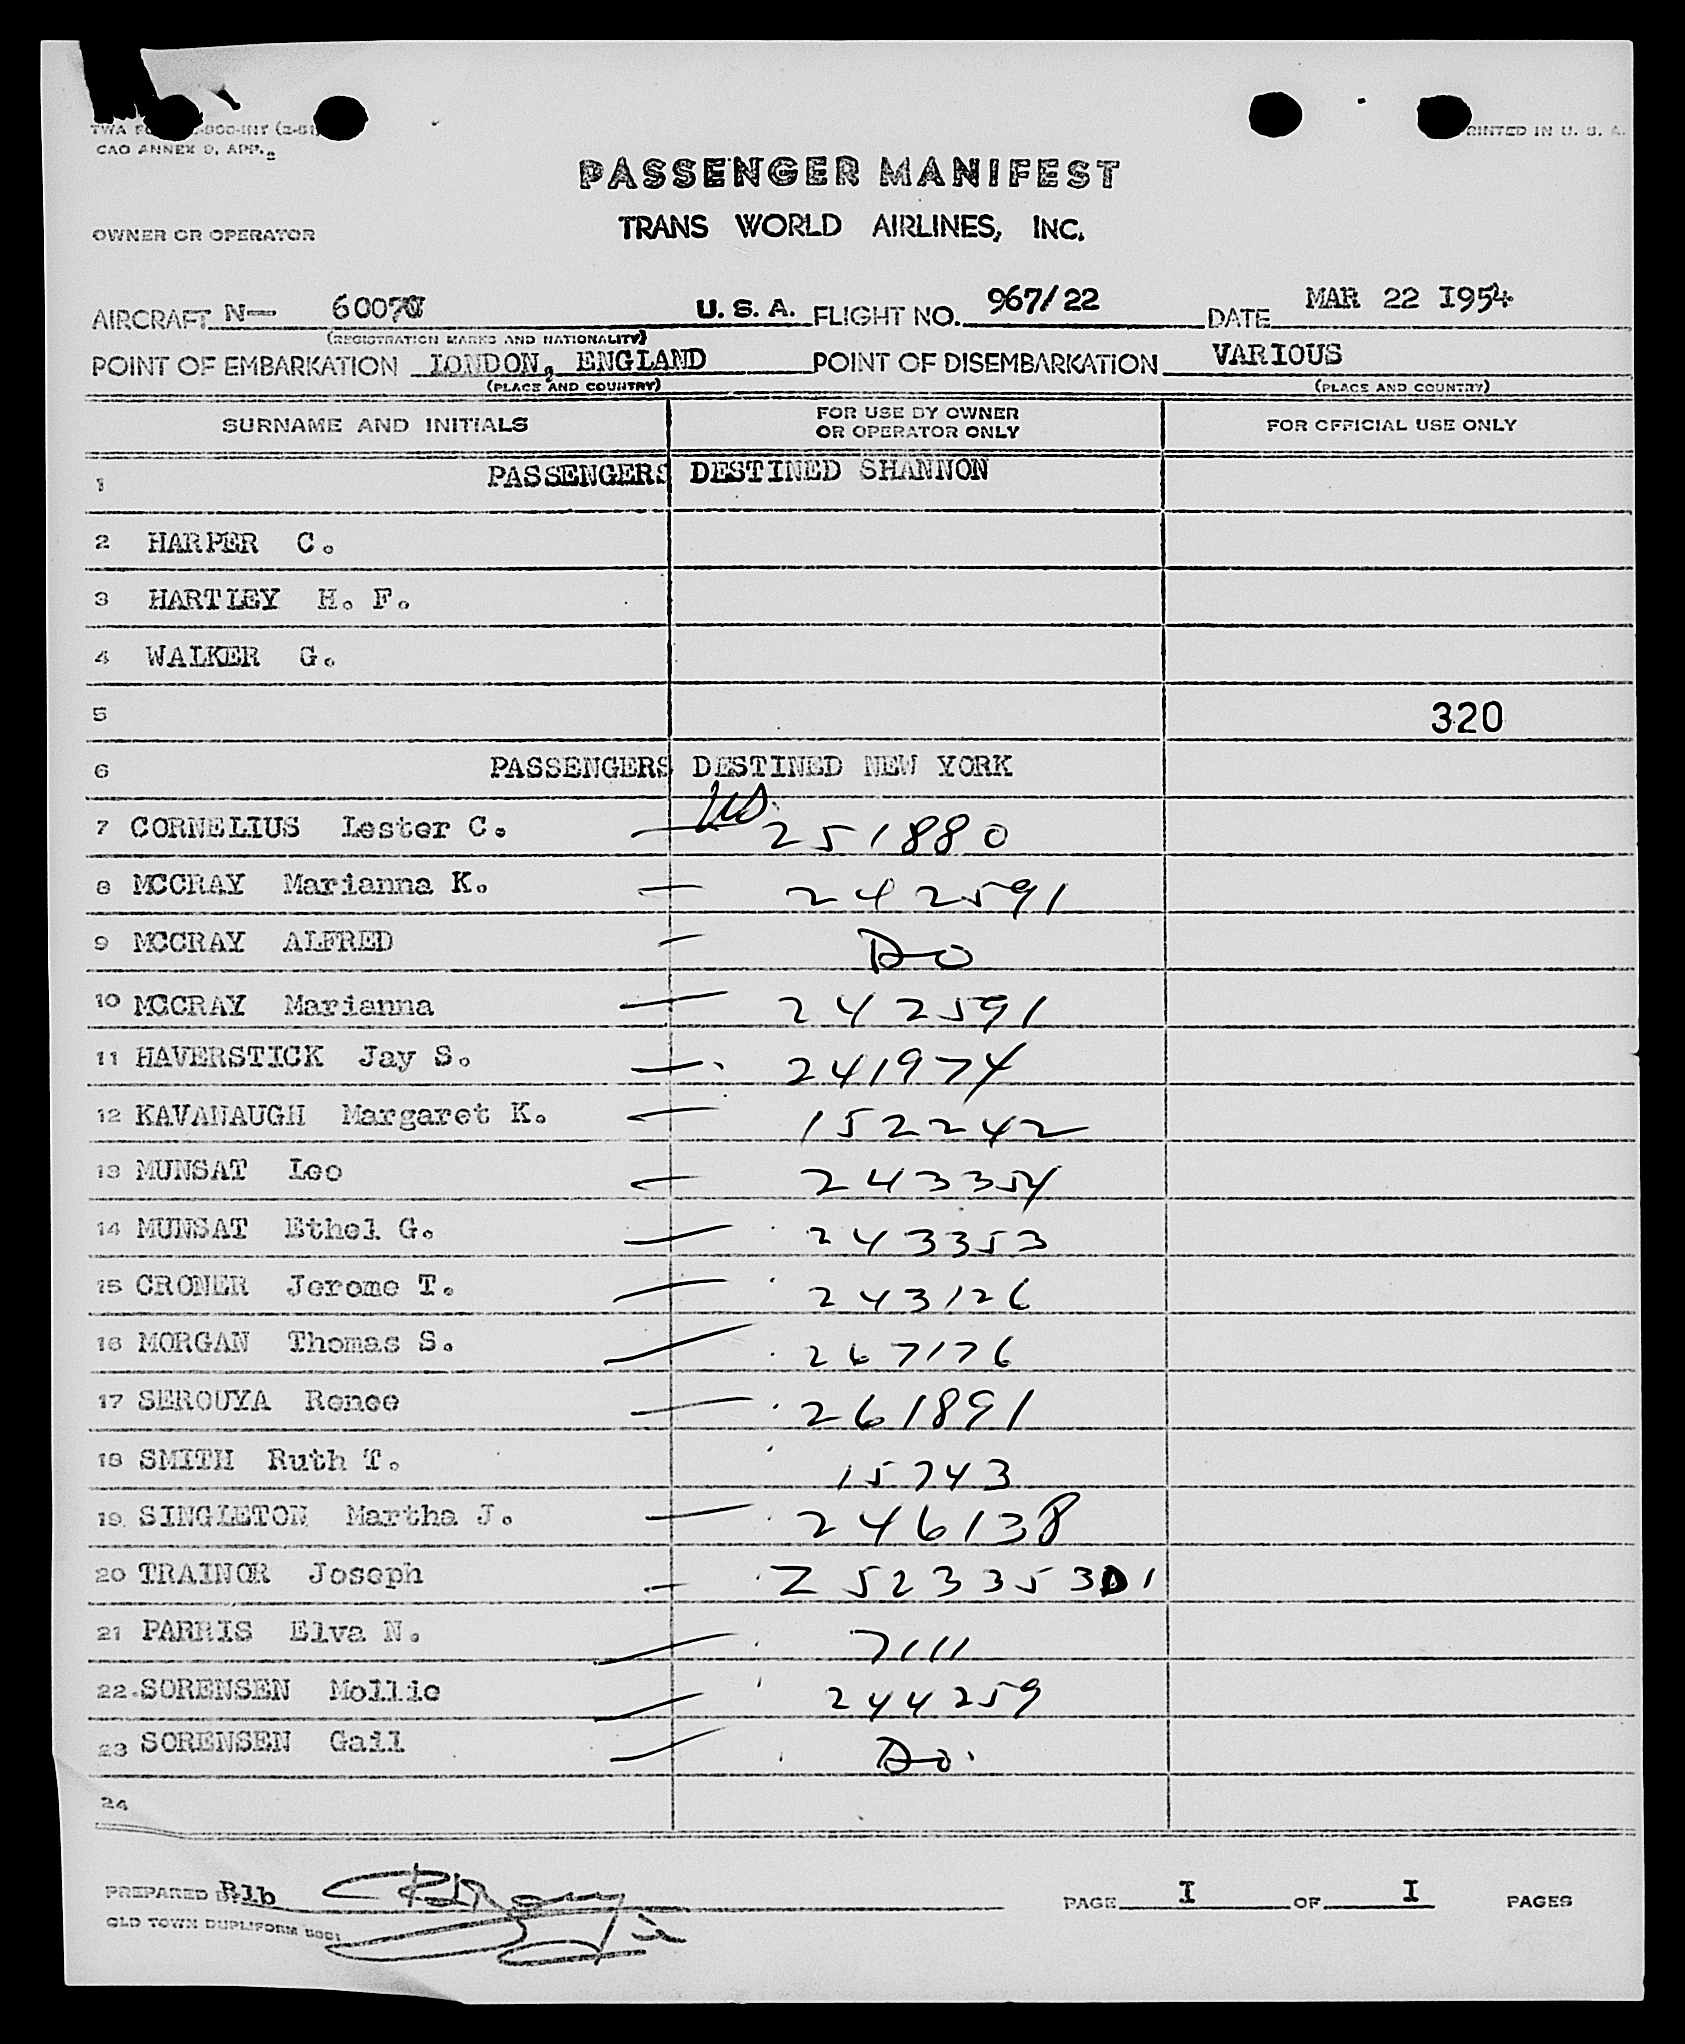 CAO ANNEX 9, APP.
PRINTED IN U. S. A.
PASSENGER MANIFEST
OWNER OR OPERATOR
TRANS WORLD AIRLINES, INC.
AIRCRAFT N— U. S. A. FLIGHT NO. 967/22 DATE MAR 22 I954
(REGISTRATION MARKS AND NATIONALITY)
POINT OF EMBARKATION LONDON, ENGLAND POINT OF DISEMBARKATION VARIOUS
(PLACE AND COUNTRY) (PLACE AND COUNTRY)
SURNAME AND INITIALS FOR USE BY OWNER OR OPERATOR ONLY FOR OFFICIAL USE ONLY
1 PASSENGERS DESTINED SHANNON
2 HARPER C.
3 HARTLEY H. F.
4 WALKER G.
5 320
6 PASSENGERS DESTINED NEW YORK
7 CORNELIUS Lester C. — US 251880
8 MCCRAY Marianna K. — 242591
9 MCCRAY ALFRED — Do
10 MCCRAY Marianna — 242591
11 HAVERSTICK Jay S. — 241974
12 KAVANAUGH Margaret K. — 152242
13 MUNSAT Leo — 243354
14 MUNSAT Ethel G. — 243353
15 CRONER Jerome T. — 243126
16 MORGAN Thomas S. — 267176
17 SEROUYA Renee — 261891
18 SMITH Ruth T. 15743
19 SINGLETON Martha J. — 246138
20 TRAINOR Joseph — Z 5233530 1
21 PARRIS Elva N. — 7111
22 SORENSEN Mollie — 244259
23 SORENSEN Gail — Do.
24
PREPARED BY Rlb PAGE I OF I PAGES
OLD TOWN DUPLIFORM